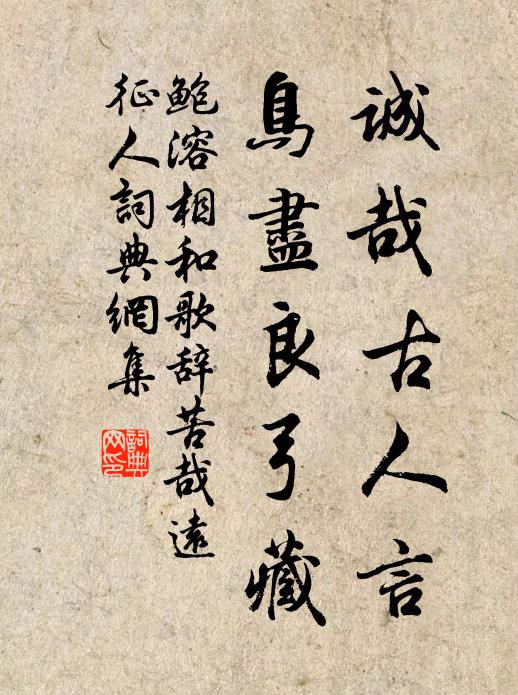 誠哉古人言
鳥盡良弓藏
鮑溶相和歌辞苦哉遠
征人詞典網集
詞典网印